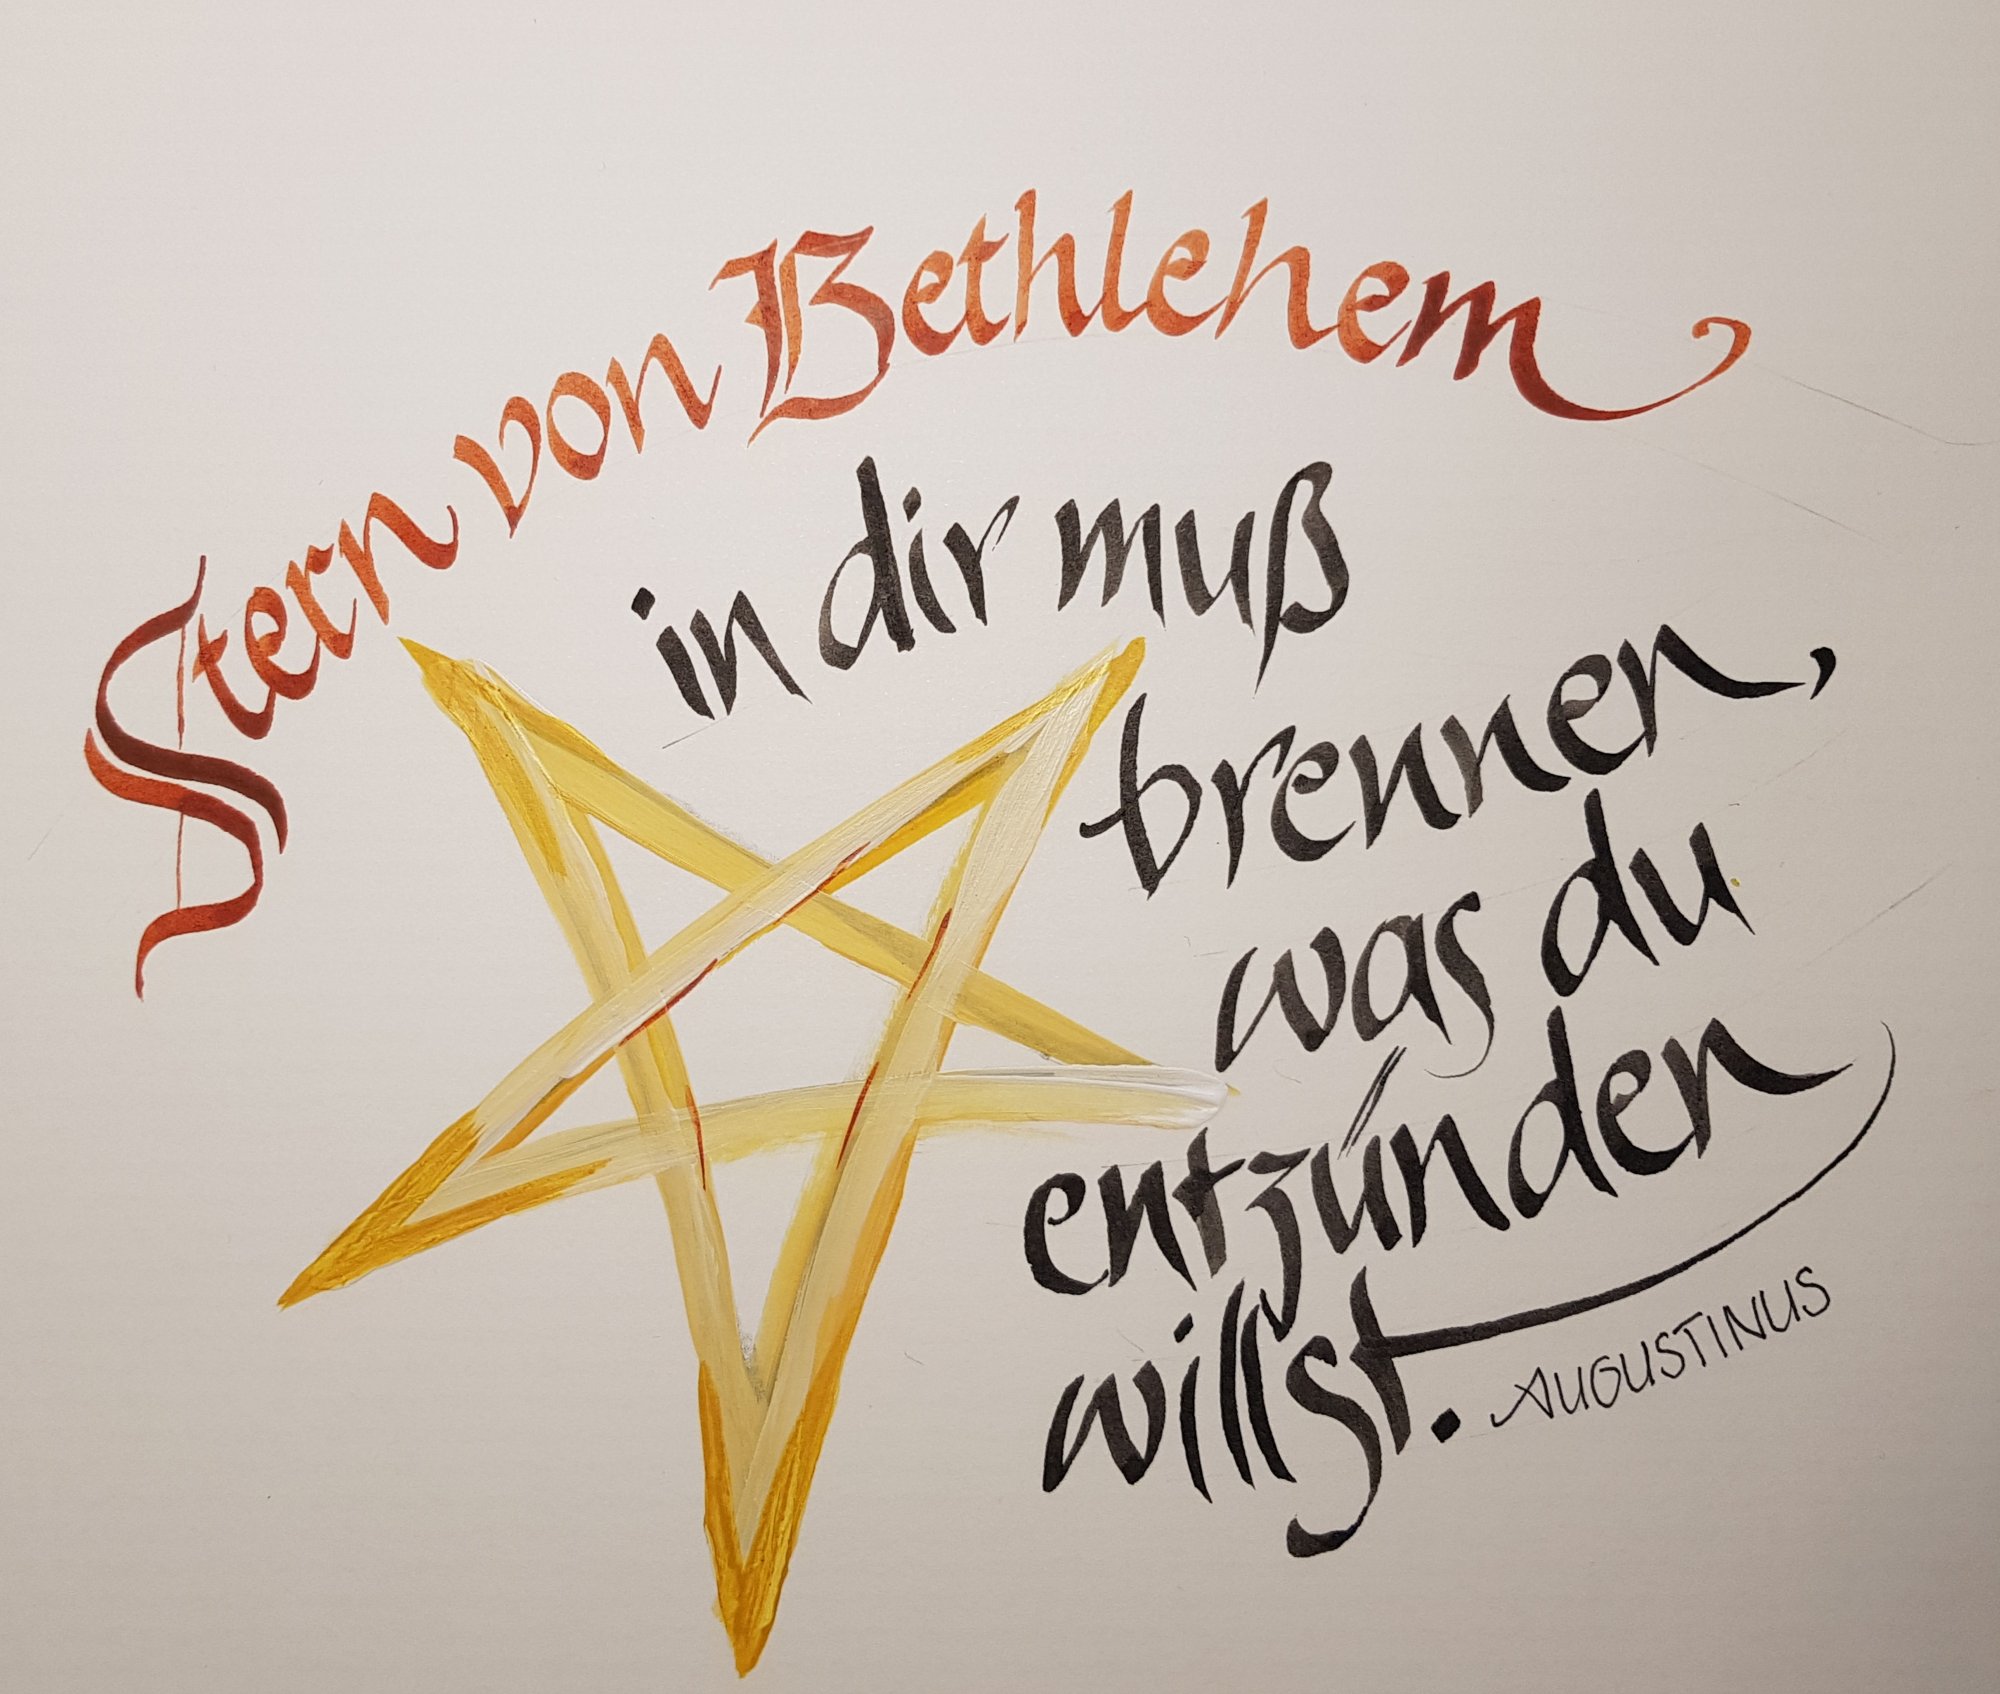 Stern von Bethlehem
in dir muß
brennen,
was du
entzünden
willst.
AUGUSTINUS